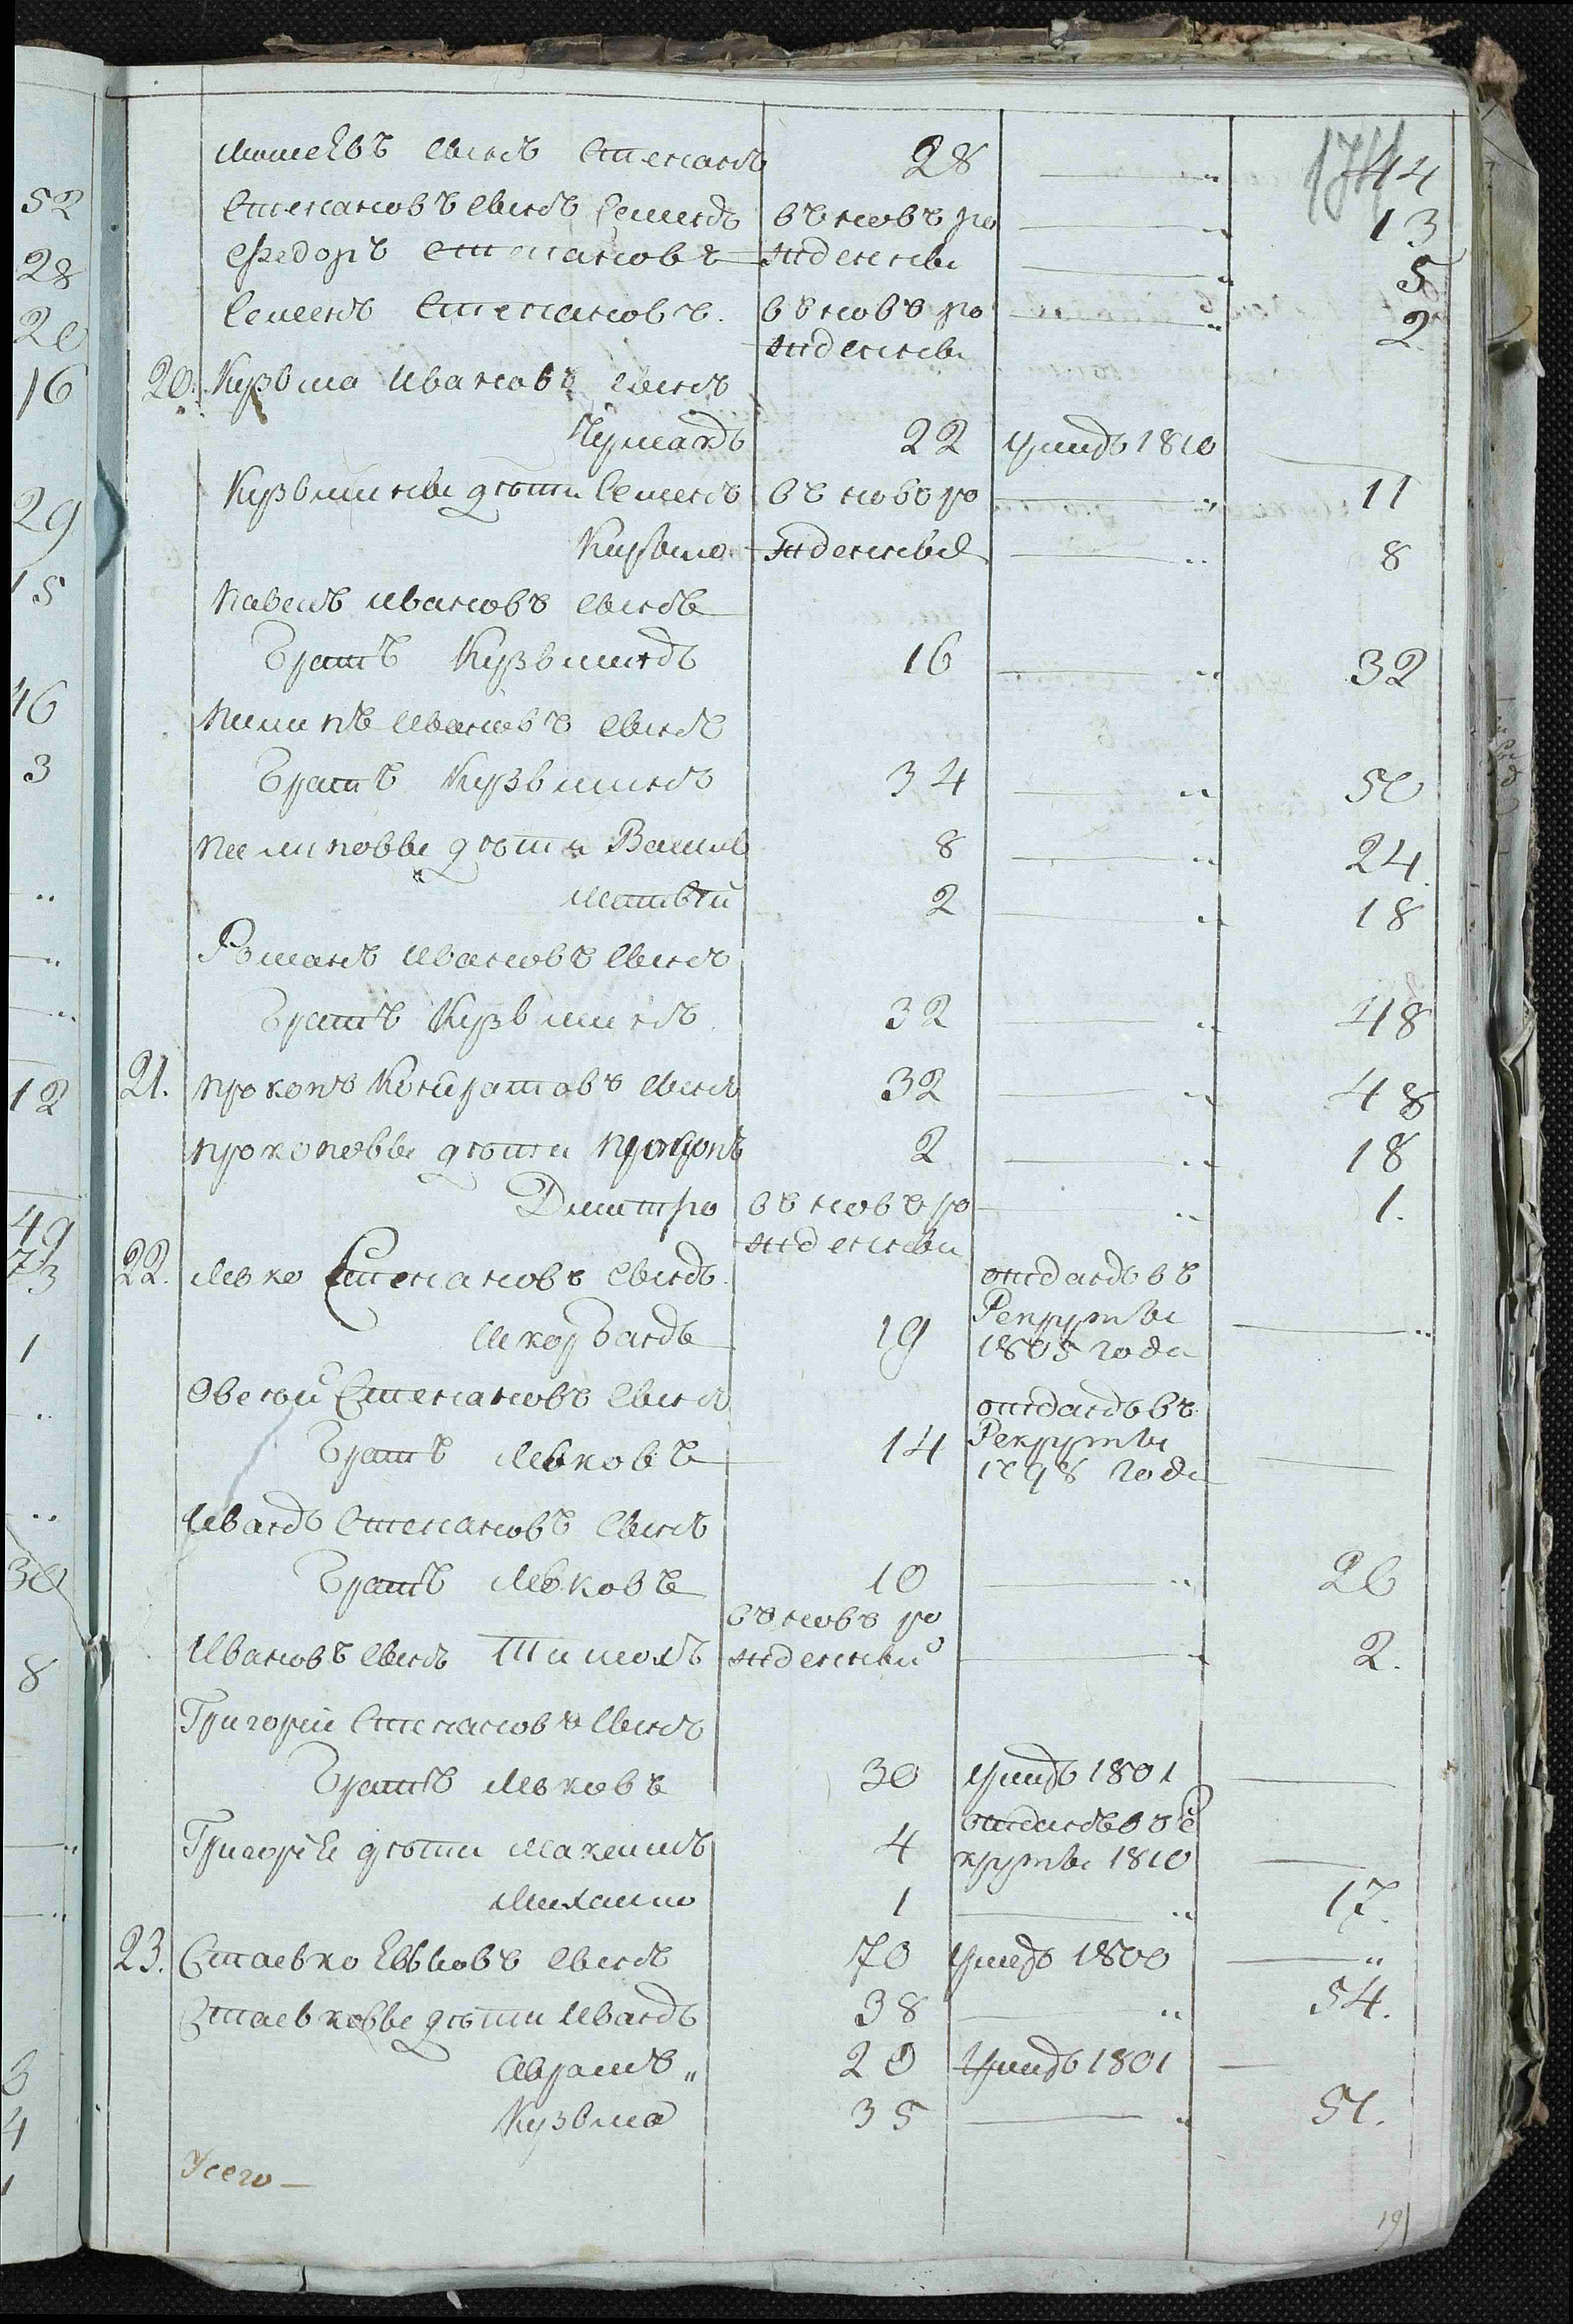 174
сынъ Степанъ 28 — " 44
Степановъ сынъ Семенъ въновъ ро — " 13
Федоръ Степановъ жденные — " 5
Семенъ Степановъ. въновъ ро — " 2
жденные
20. Кузьма Ивановъ сынъ
22 умиръ 1810 —
Кузьмины дѣти Семенъ въ новъ ро — " 11
Кузьма жденные — " 8
Павелъ Ивановъ сынъ
братъ Кузьминъ 16 — " 32
Пилипъ Ивановъ сынъ
братъ Кузьминъ 34 — " 50
Пилиповы дѣти Василь 8 — " 24.
Матвѣй 2 — " 18
Романъ Ивановъ сынъ
братъ Кузьминъ 32 — " 48
21. Прокопъ Кондратовъ сынъ 32 — " 48
Прокоповы дѣти Прокопъ 2 — " 18
Дмитро въ новъ ро — " 1.
жденный
22. Левко Степановъ сынъ отданъ въ
19 Рекруты — "
1805 года
Степановъ сынъ отданъ въ
братъ Левковъ 14 Рекруты —
1798 года
Иванъ Степановъ сынъ
братъ Левковъ 10 — " 26
въ новъ ро
Ивановъ сынъ жденный — " 2.
Григорей Степановъ сынъ
братъ Левковъ 30 умиръ 1801 —
Григорьевы дѣти Максимъ 4 отданъ въ ре
круты 1810 —
Михайло 1 — " 17.
23. сынъ 70 умеръ 1800 — "
дѣти Иванъ 38 — " 54.
Аврамъ " 20 умиръ 1801 —
Кузьма 35 — " 51.
Усего —
19
52
28
20
16
29
15
46
3
"
— "
— "
12
49
73
1
"
"
30
8
— "
— "
3
4
1